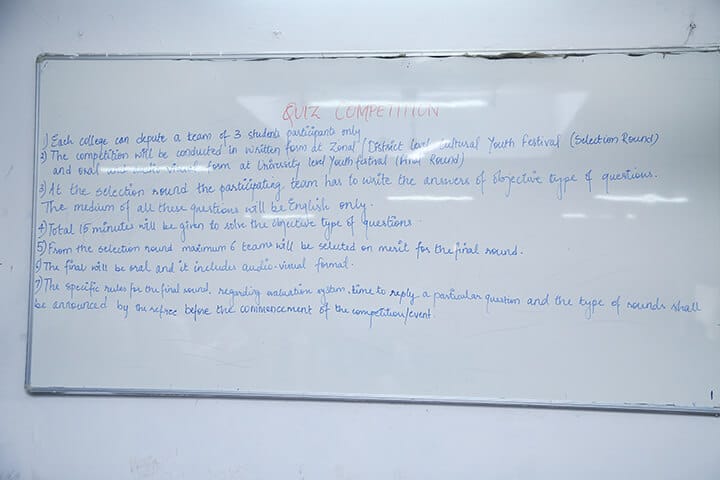 QUIZ COMPETITION
1) Each college can depute a team of 3 students participants only
2) The competition will be conducted in written form at Zonal / District level cultural Youth Festival (Selection Round)
and oral form at University level Youth festival (Final Round)
3) At the selection round the participating team has to write the answers of objective type of questions.
The medium of all these questions will be English only.
4) Total 15 minutes will be given to solve the objective type of questions.
5) From the selection round maximum 6 teams will be selected on merit for the final round.
6) The final will be oral and it includes audio-visual format.
7) The specific rules for the final round, regarding evaluation system, time to reply a particular question and the type of rounds shall
be announced by the refree before the commencement of the competition/event.